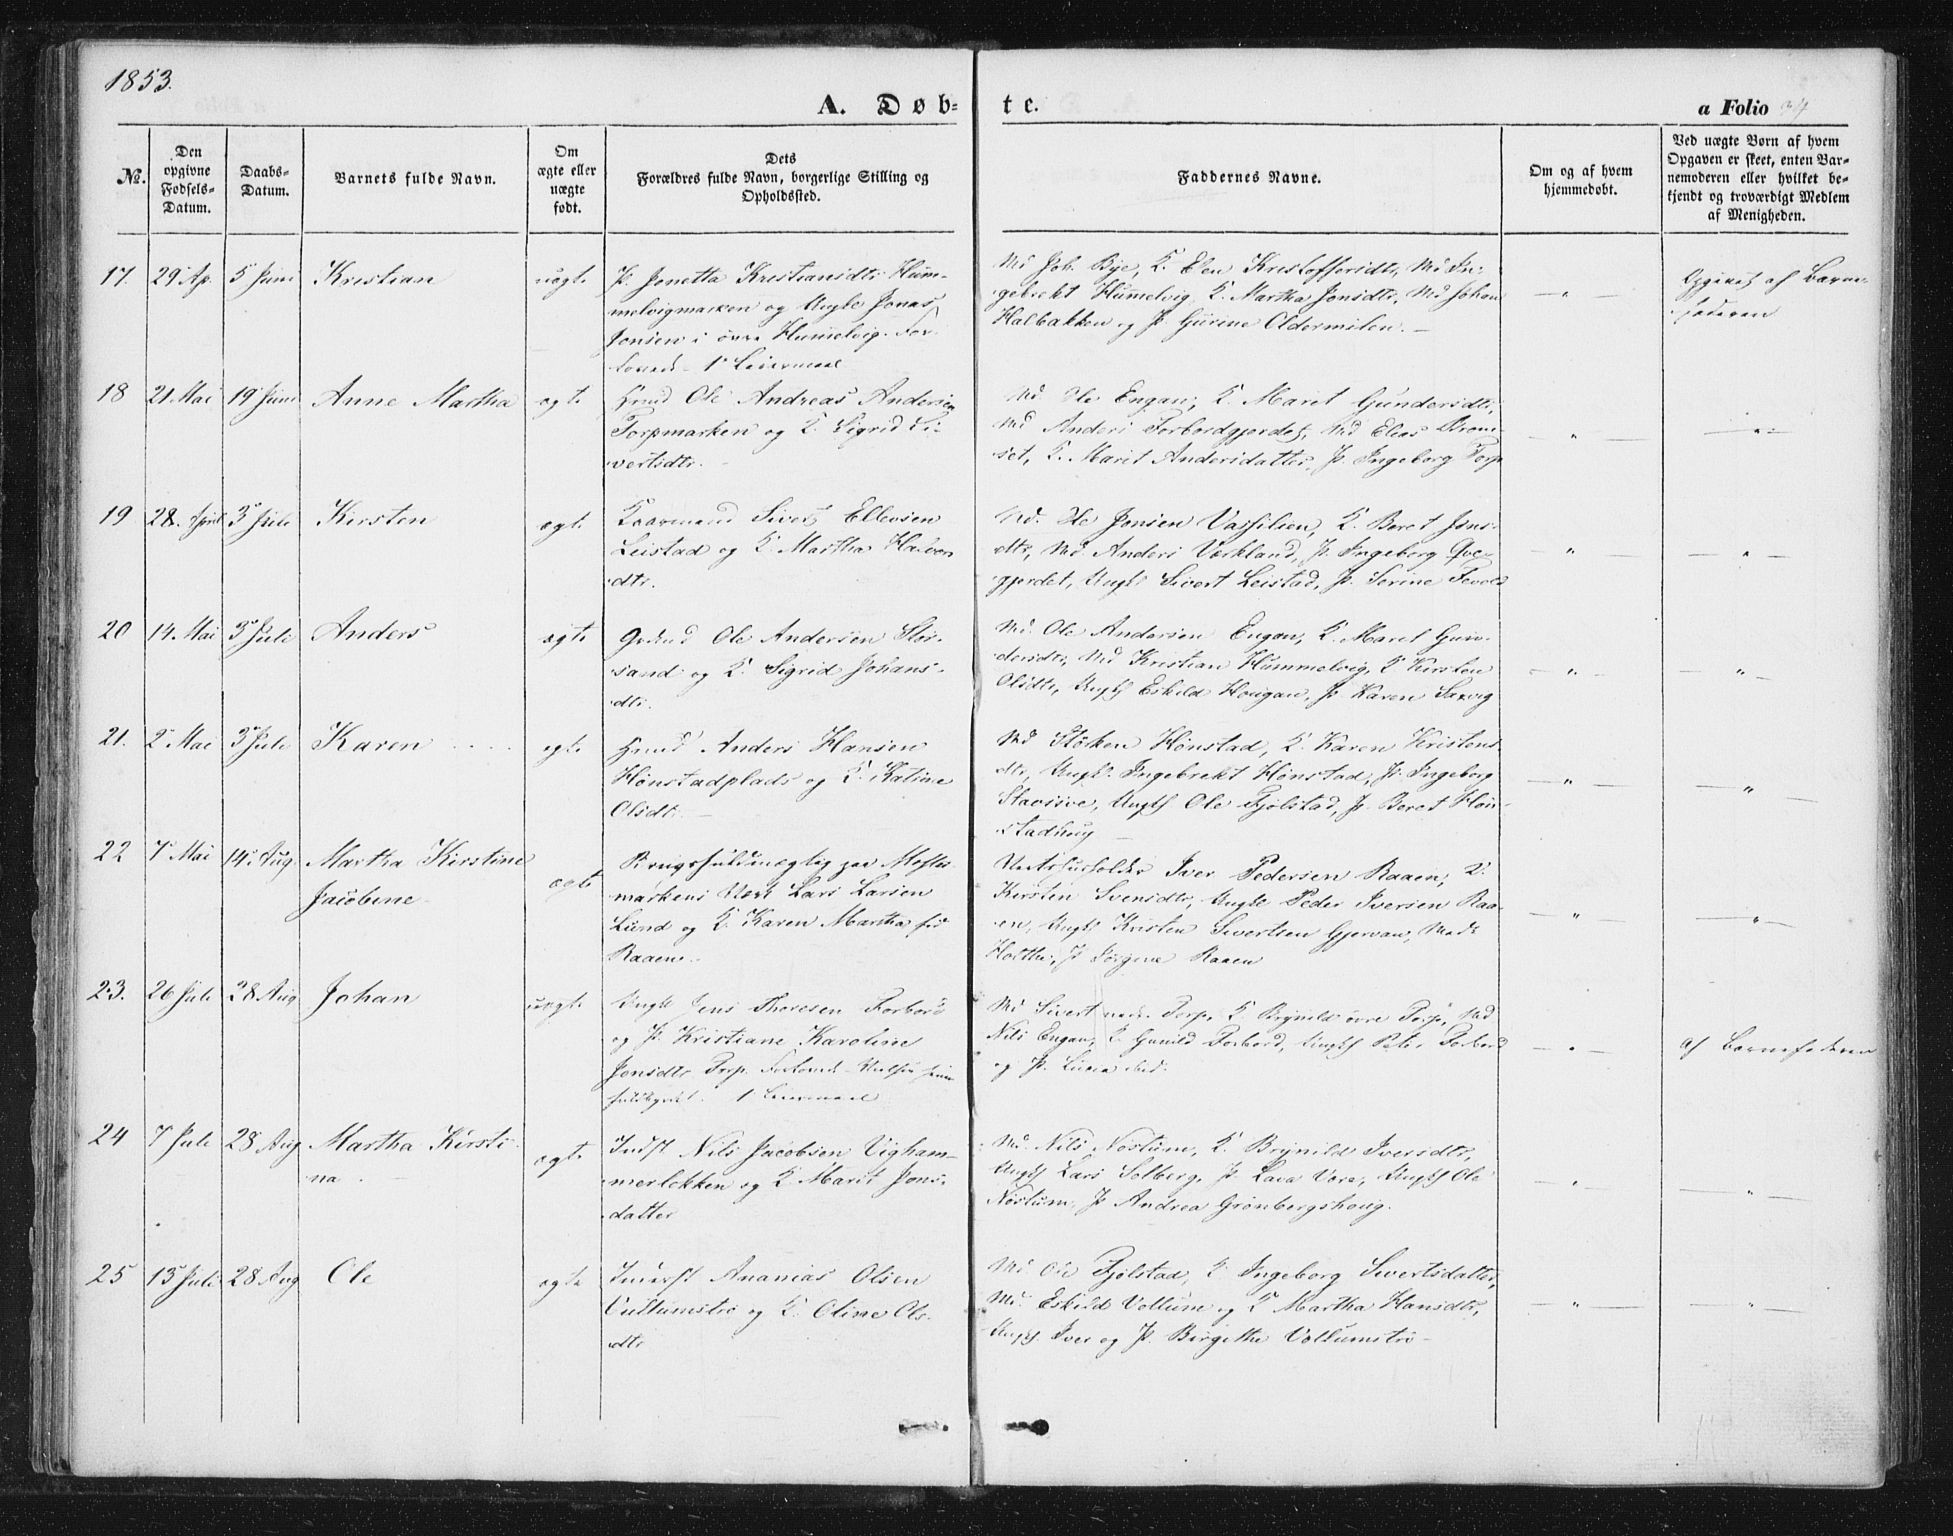 1853.
A. Døb-
te.
a Folio 34
No.
Den
opgivne
Fødsels-
Datum.
Daabs-
Datum.
Barnets fulde Navn.
Om
ægte eller
uægte
født.
Dets
Forældres fulde Navn, borgerlige Stilling og
Opholdssted.
Faddernes Navne.
Om og af hvem
hjemmedøbt.
Ved uægte Børn af hvem
Opgaven er skeet, enten Bar-
nemoderen eller hvilket be-
kjendt og troværdigt Medlem
af Menigheden.
17. 29 Ap. 5 Juni Kristian uægte
P. Jonetta Kristiansdtr Hum-
melvigmarken og Ungk Jonas
Jonsen i øvre Hummelvig. For-
lovede - 1 Leiermaal
Md Joh. Bye, K. Elen Kristoffersdtr, Md In-
gebrekt Hummelvig, K. Martha Jonsdtr, Md Johan
Halbakken og P. Gurine Oldermelen. -
Opgivet af Barne-
faderen
18 21 Mai 19 Juni Anne Martha ægte
Hmd Ole Andreas Andersen
Torpmarken og K. Sigrid Si-
vertsdtr.
Md. Ole Engan, K. Maret Gundersdtr,
Md Anders Forbordgjerdet, Md Elias Drom-
set, K. Marit Andersdatter, P. Ingeborg Torp
19 28. April 3 Juli Kirsten ægte
Kaarmand Siver Ellevsen
Leistad og K. Martha Halvor
dtr.
Md. Ole Jonsen Vasslien, K. Beret Jons-
dtr, Md. Anders Værkland, P. Ingeborg Qve-
gjerdet, Ungk Sivert Leistad, P. Serine Fevold
20 14 Mai 3 Juli Anders ægte
Grdmd Ole Andersen Stor-
sand og K. Sigrid Johans-
dtr.
Md. Ole Andersen Engan, K. Maret Gun-
dersdtr, Md Kristian Hummelvig, K Kirsten
Olsdtr, Ungk Eskild Hougan, P. Karen Saxvig
21. 2 Mai 3 Juli Karen ægte
Hmd Anders Hansen
Hønstadplads og K. Katine
Olsdtr. -
Md Størken Hønstad, K. Karen Kristens
dtr, Ungk. Ingebrekt Hønstad, P. Ingeborg
Stavsøve, Ungk Ole Fjølstad, P. Beret Høn-
stadhaug -
22 7 Mai 14 Aug. Martha Kirstine
Jacobine ægte
Brugsfuldmægtig paa Mosta-
markens Værk Lars Larsen
Lund og K. Karen Martha fød
Raaen.
Vertshusholder Iver Pedersen Raaen, K.
Kirsten Svensdtr, Ungk Peder Iversen Raa-
en, Ungk Kristen Sivertsen Gjervan, Mads
Holthe, P Jørgine Raaen
23. 26 Juli 28 Aug Johan uægte
Ungk Jens Thoresen Forbord
og P. Kristiane Karoline
Jonsdtr Torp. Forlovede
1 Leiermaal
Md Sivert nedre Torp, K. Brynild øvre Torp, Md
Nils Engan, K. Gunild Forbord, Ungk Peter Forbord
og P. Lucia ibid.
af Barnefaderen
24 7 Juli 28 Aug Martha Kirsti-
na ægte
Indst Nils Jacobsen Vigham-
merløkken og K Marit Jons-
datter
Md. Nils Nøstum, K. Brynild Iversdtr,
Ungk Lars Solberg, P. Lava Vore, Ungk Ole
Nøstum, P Andrea Grønbergshaug.
25 13 Juli 28 Aug Ole ægte
Inderst Ananias Olsen
Vullumstrø og K. Oline Ols-
dtr
Md Ole Fjølstad, K Ingeborg Sivertsdatter,
Md. Eskild Vollum og K Martha Hansdtr,
Ungk Iver og P. Birgithe Vollumstrø -